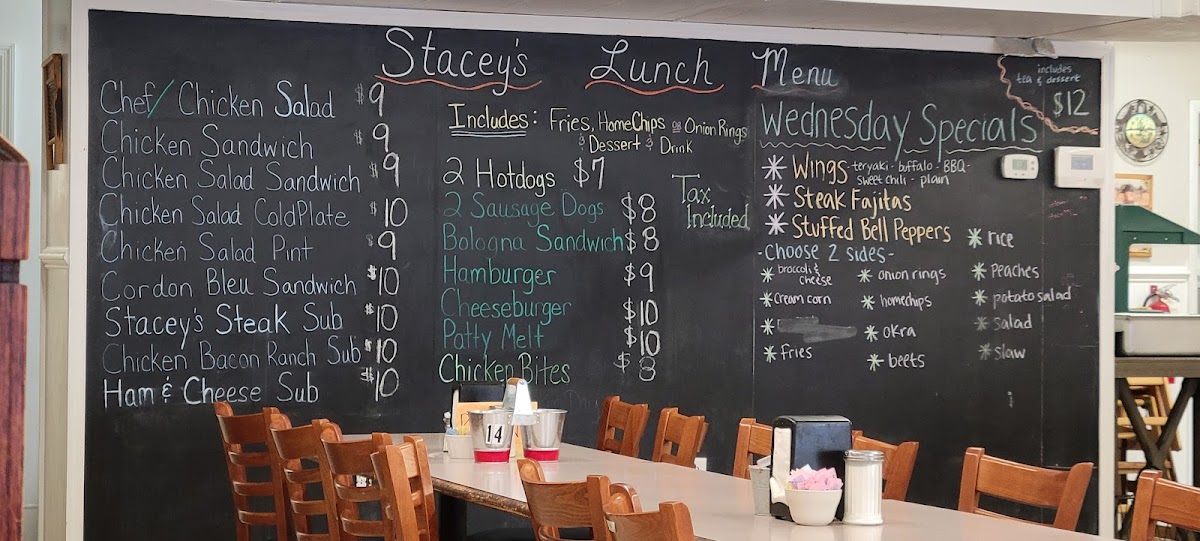 Stacey's Lunch Menu
Chef/Chicken Salad $9
Chicken Sandwich $9
Chicken Salad Sandwich $9
Chicken Salad ColdPlate $10
Chicken Salad Pint $9
Cordon Bleu Sandwich $10
Stacey's Steak Sub $10
Chicken Bacon Ranch Sub $10
Ham & Cheese Sub $10
Includes: Fries, HomeChips OR Onion Rings
& Dessert & Drink
2 Hotdogs $7
2 Sausage Dogs $8
Bologna Sandwich $8
Hamburger $9
Cheeseburger $10
Patty Melt $10
Chicken Bites $8
Tax
Included
includes
tea & dessert
$12
Wednesday Specials
* Wings - teryaki - buffalo - BBQ -
sweet chili - plain
* Steak Fajitas
* Stuffed Bell Peppers
- Choose 2 sides -
* broccoli &
cheese
* cream corn
*
* fries
* onion rings
* homechips
* okra
* beets
* rice
* peaches
* potato salad
* salad
* slaw
14